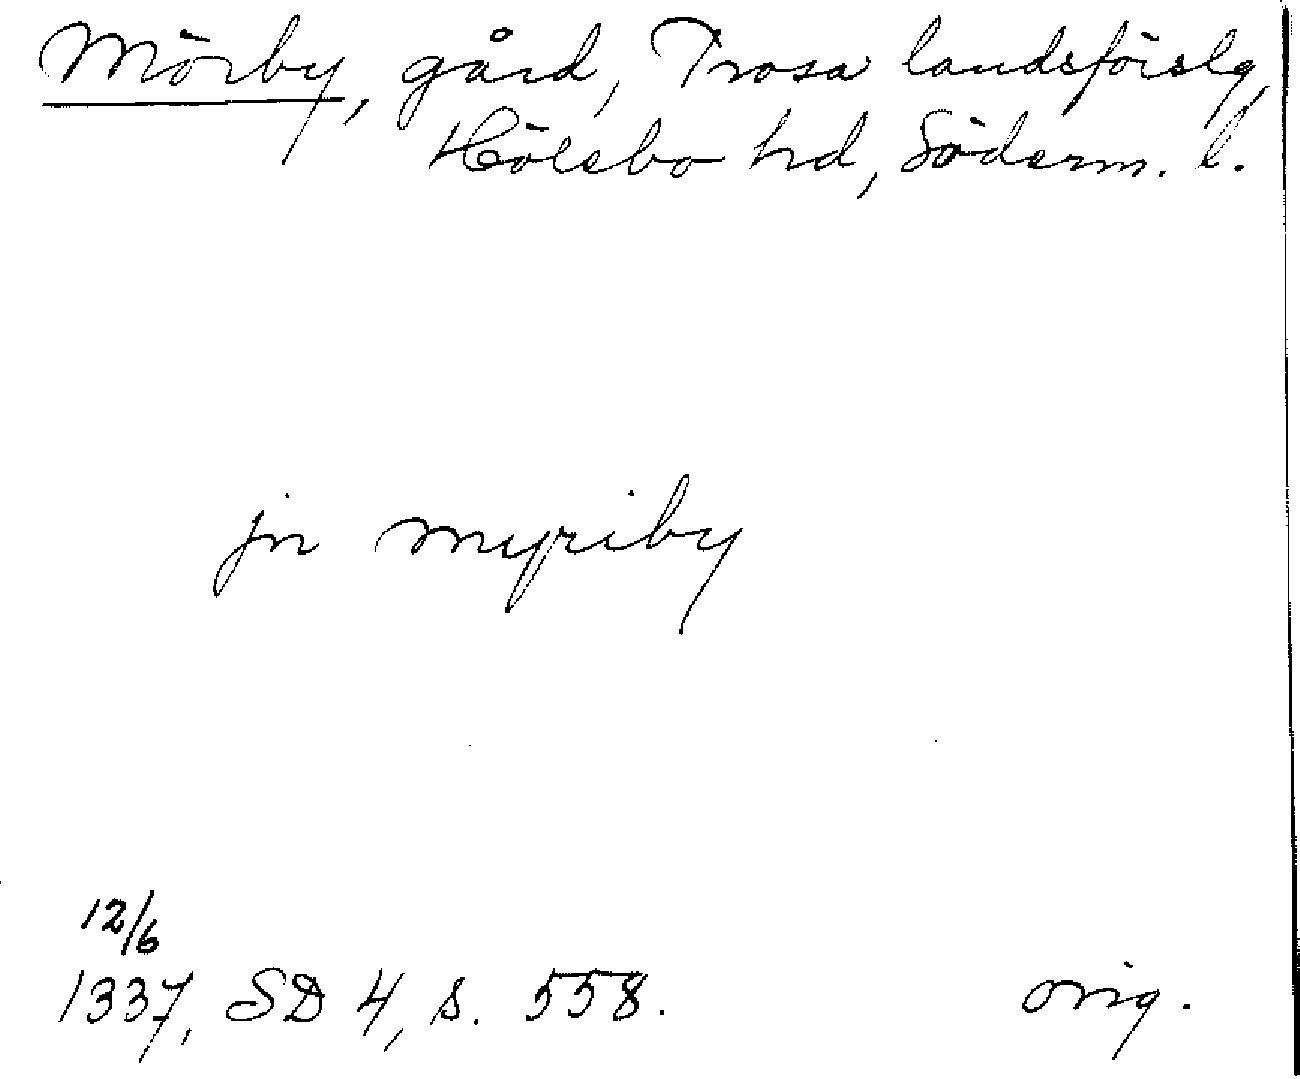 Mörby, gård, Trosa landsförslg,
Hölebo hd, Söderm. l.
jn myriby
12/6
1337, SD 4, s. 558.
orig.